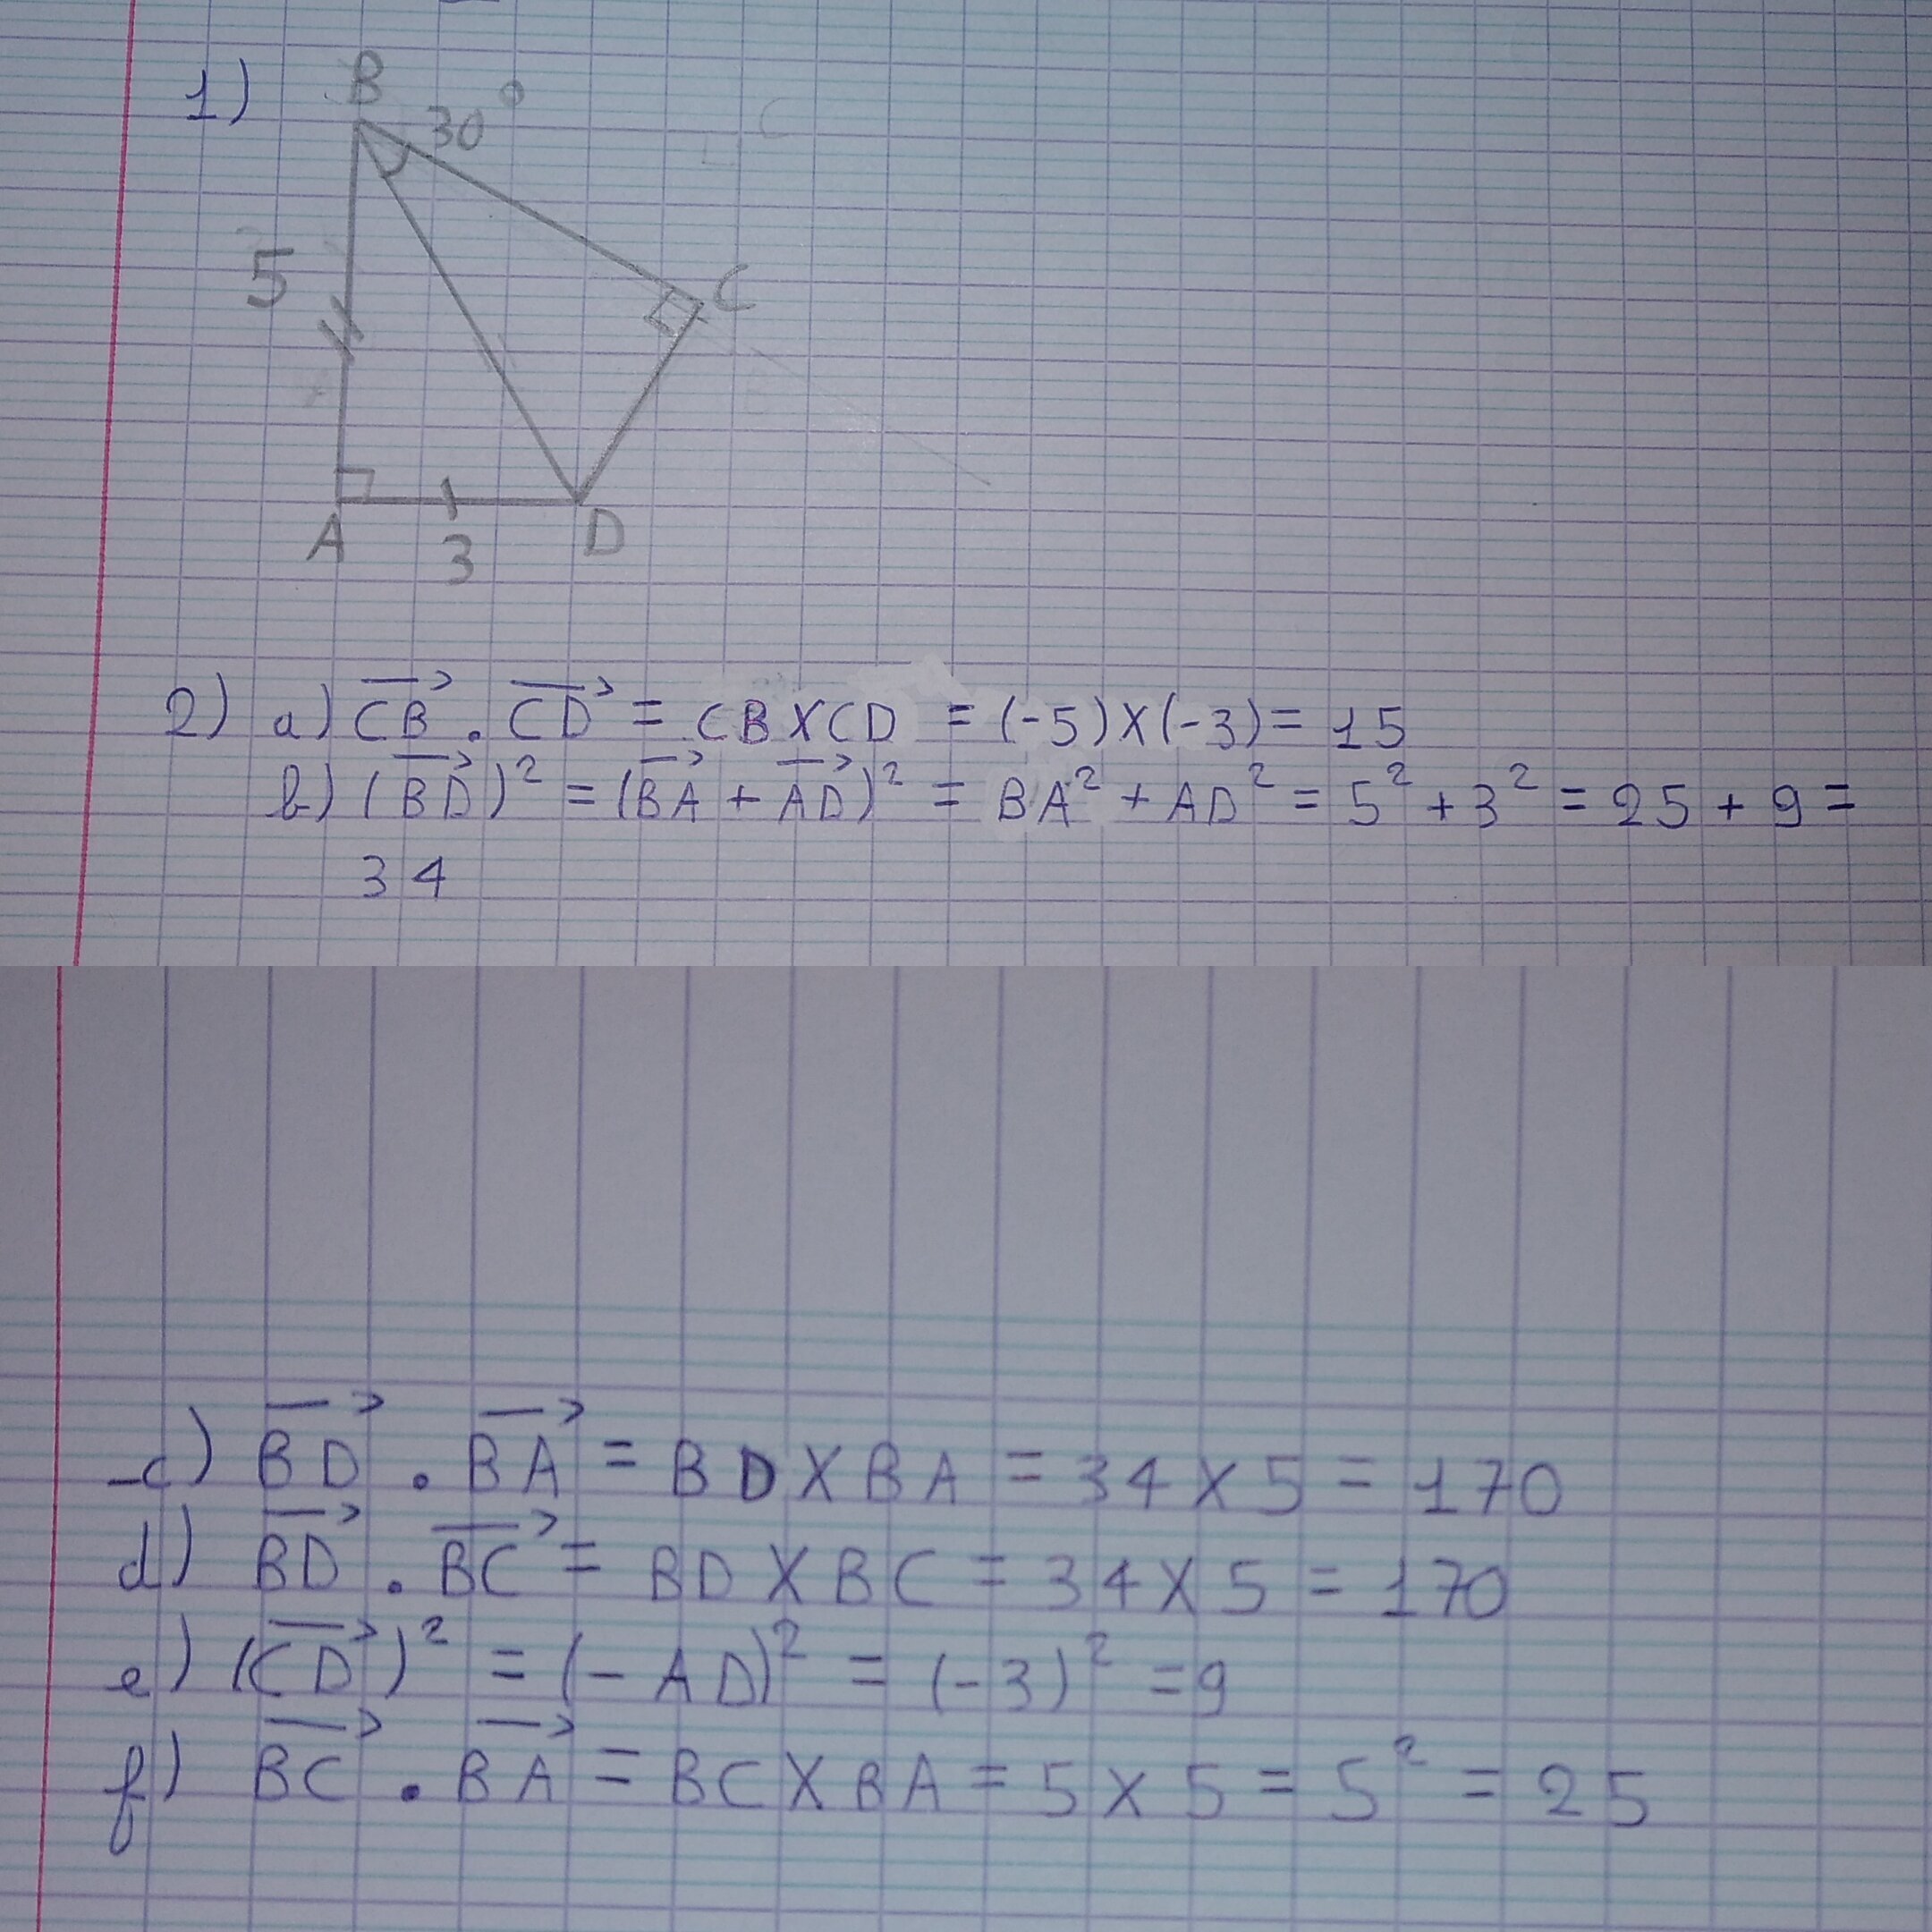 1)
B
30°
5
C
A
3
D
2) a) $\overrightarrow{CB} . \overrightarrow{CD} = CB X CD = (-5) X (-3) = 15$
b) $(\overrightarrow{BD})^2 = (\overrightarrow{BA} + \overrightarrow{AD})^2 = BA^2 + AD^2 = 5^2 + 3^2 = 25 + 9 =$
34
c) $\overrightarrow{BD} . \overrightarrow{BA} = BD X BA = 34 X 5 = 170$
d) $\overrightarrow{BD} . \overrightarrow{BC} = BD X BC = 34 X 5 = 170$
e) $(\overrightarrow{CD})^2 = (-AD)^2 = (-3)^2 = 9$
f) $\overrightarrow{BC} . \overrightarrow{BA} = BC X BA = 5 X 5 = 5^2 = 25$